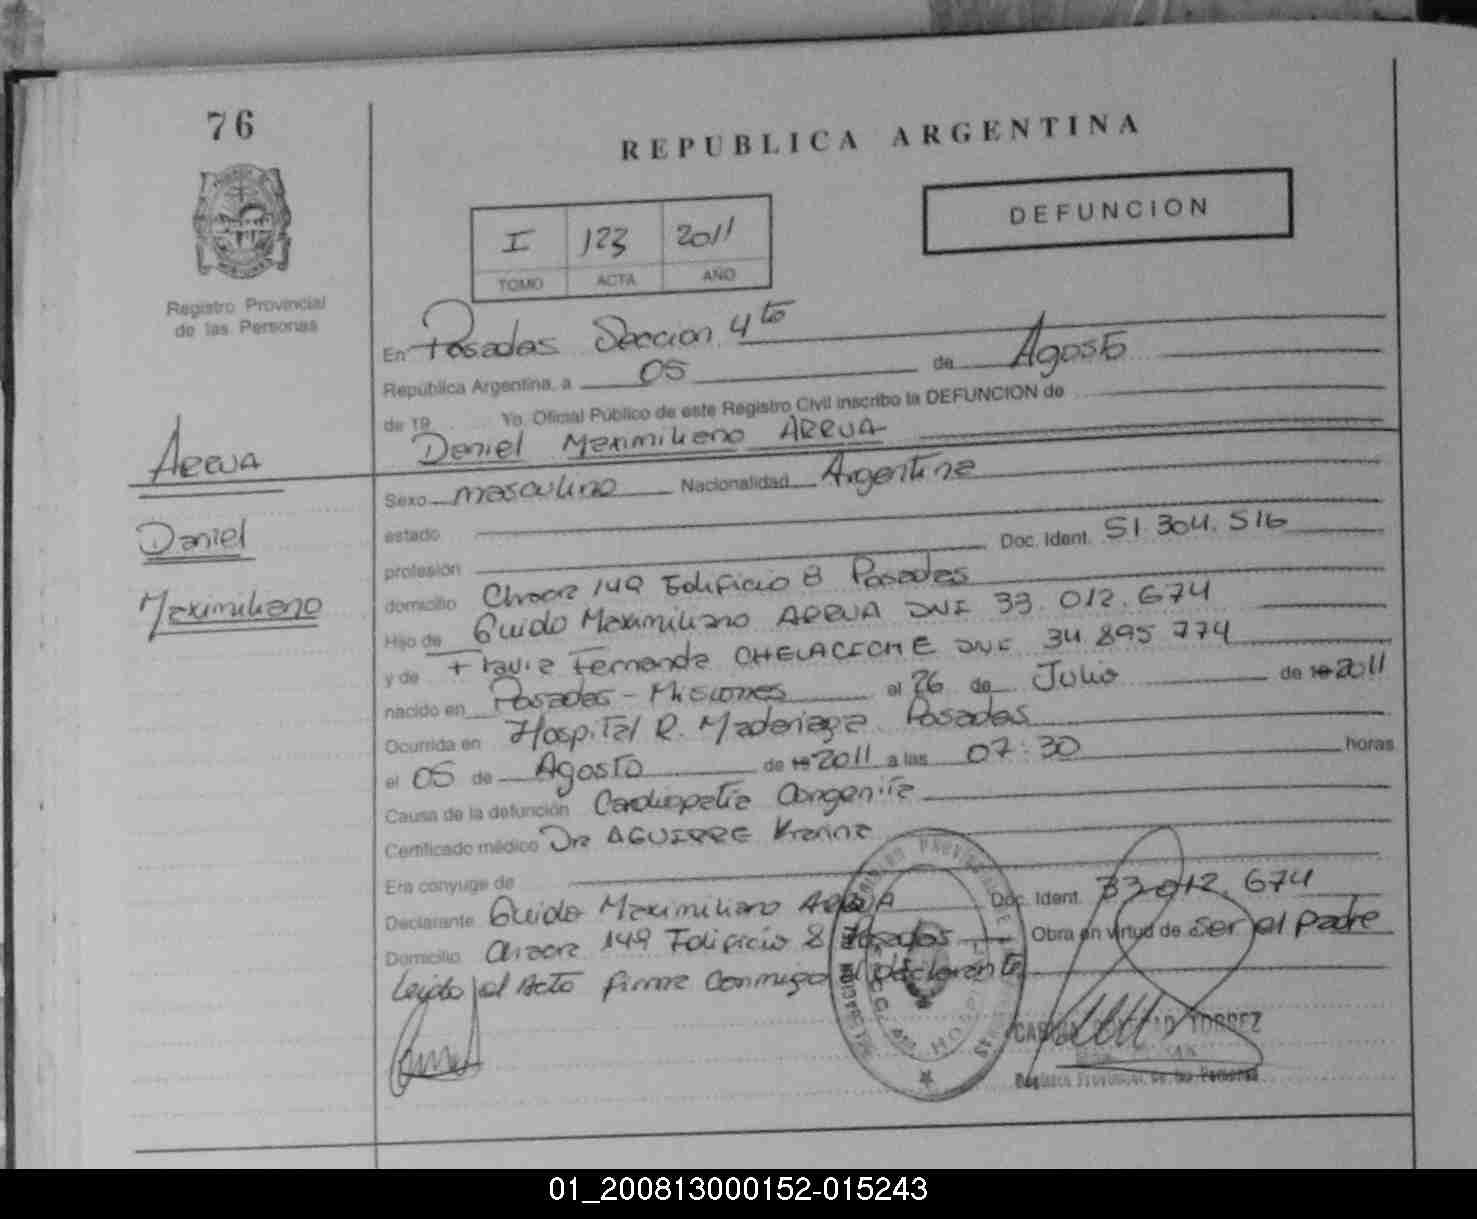 76
REPUBLICA ARGENTINA
DEFUNCION
I 123 2011
TOMO ACTA AÑO
Registro Provincial
de las Personas
En Posadas Seccion 4to
República Argentina, a 05 de Agosto
de 19 Yo, Oficial Público de este Registro Civil inscribo la DEFUNCION de
Daniel Maximiliano ARRUA
ARRUA
Daniel
Maximiliano
Sexo masculino Nacionalidad Argentina
estado
profesión Doc. Ident. 51.304.516
domicilio Chacra 149 Edificio 8 Posadas
Hijo de Guido Maximiliano ARRUA DNI 33.012.674
y de Flavia Fernanda DNI 34.895.774
nacido en Posadas - Misiones el 26 de Julio de 19 2011
Ocurrida en Hospital R. Madariaga Posadas
el 05 de Agosto de 19 2011 a las 07:30 horas
Causa de la defunción Cardiopatia Congenita
Certificado médico Dra AGUIRRE Karina
Era conyuge de
Declarante Guido Maximiliano ARRUA Doc. Ident. 33.012.674
Domicilio Chacra 149 Edificio 8 Posadas Obra en virtud de ser el padre
Leido el Acta firma conmigo el declarante
TORREZ
Registro Provincial de las Personas
01_200813000152-015243